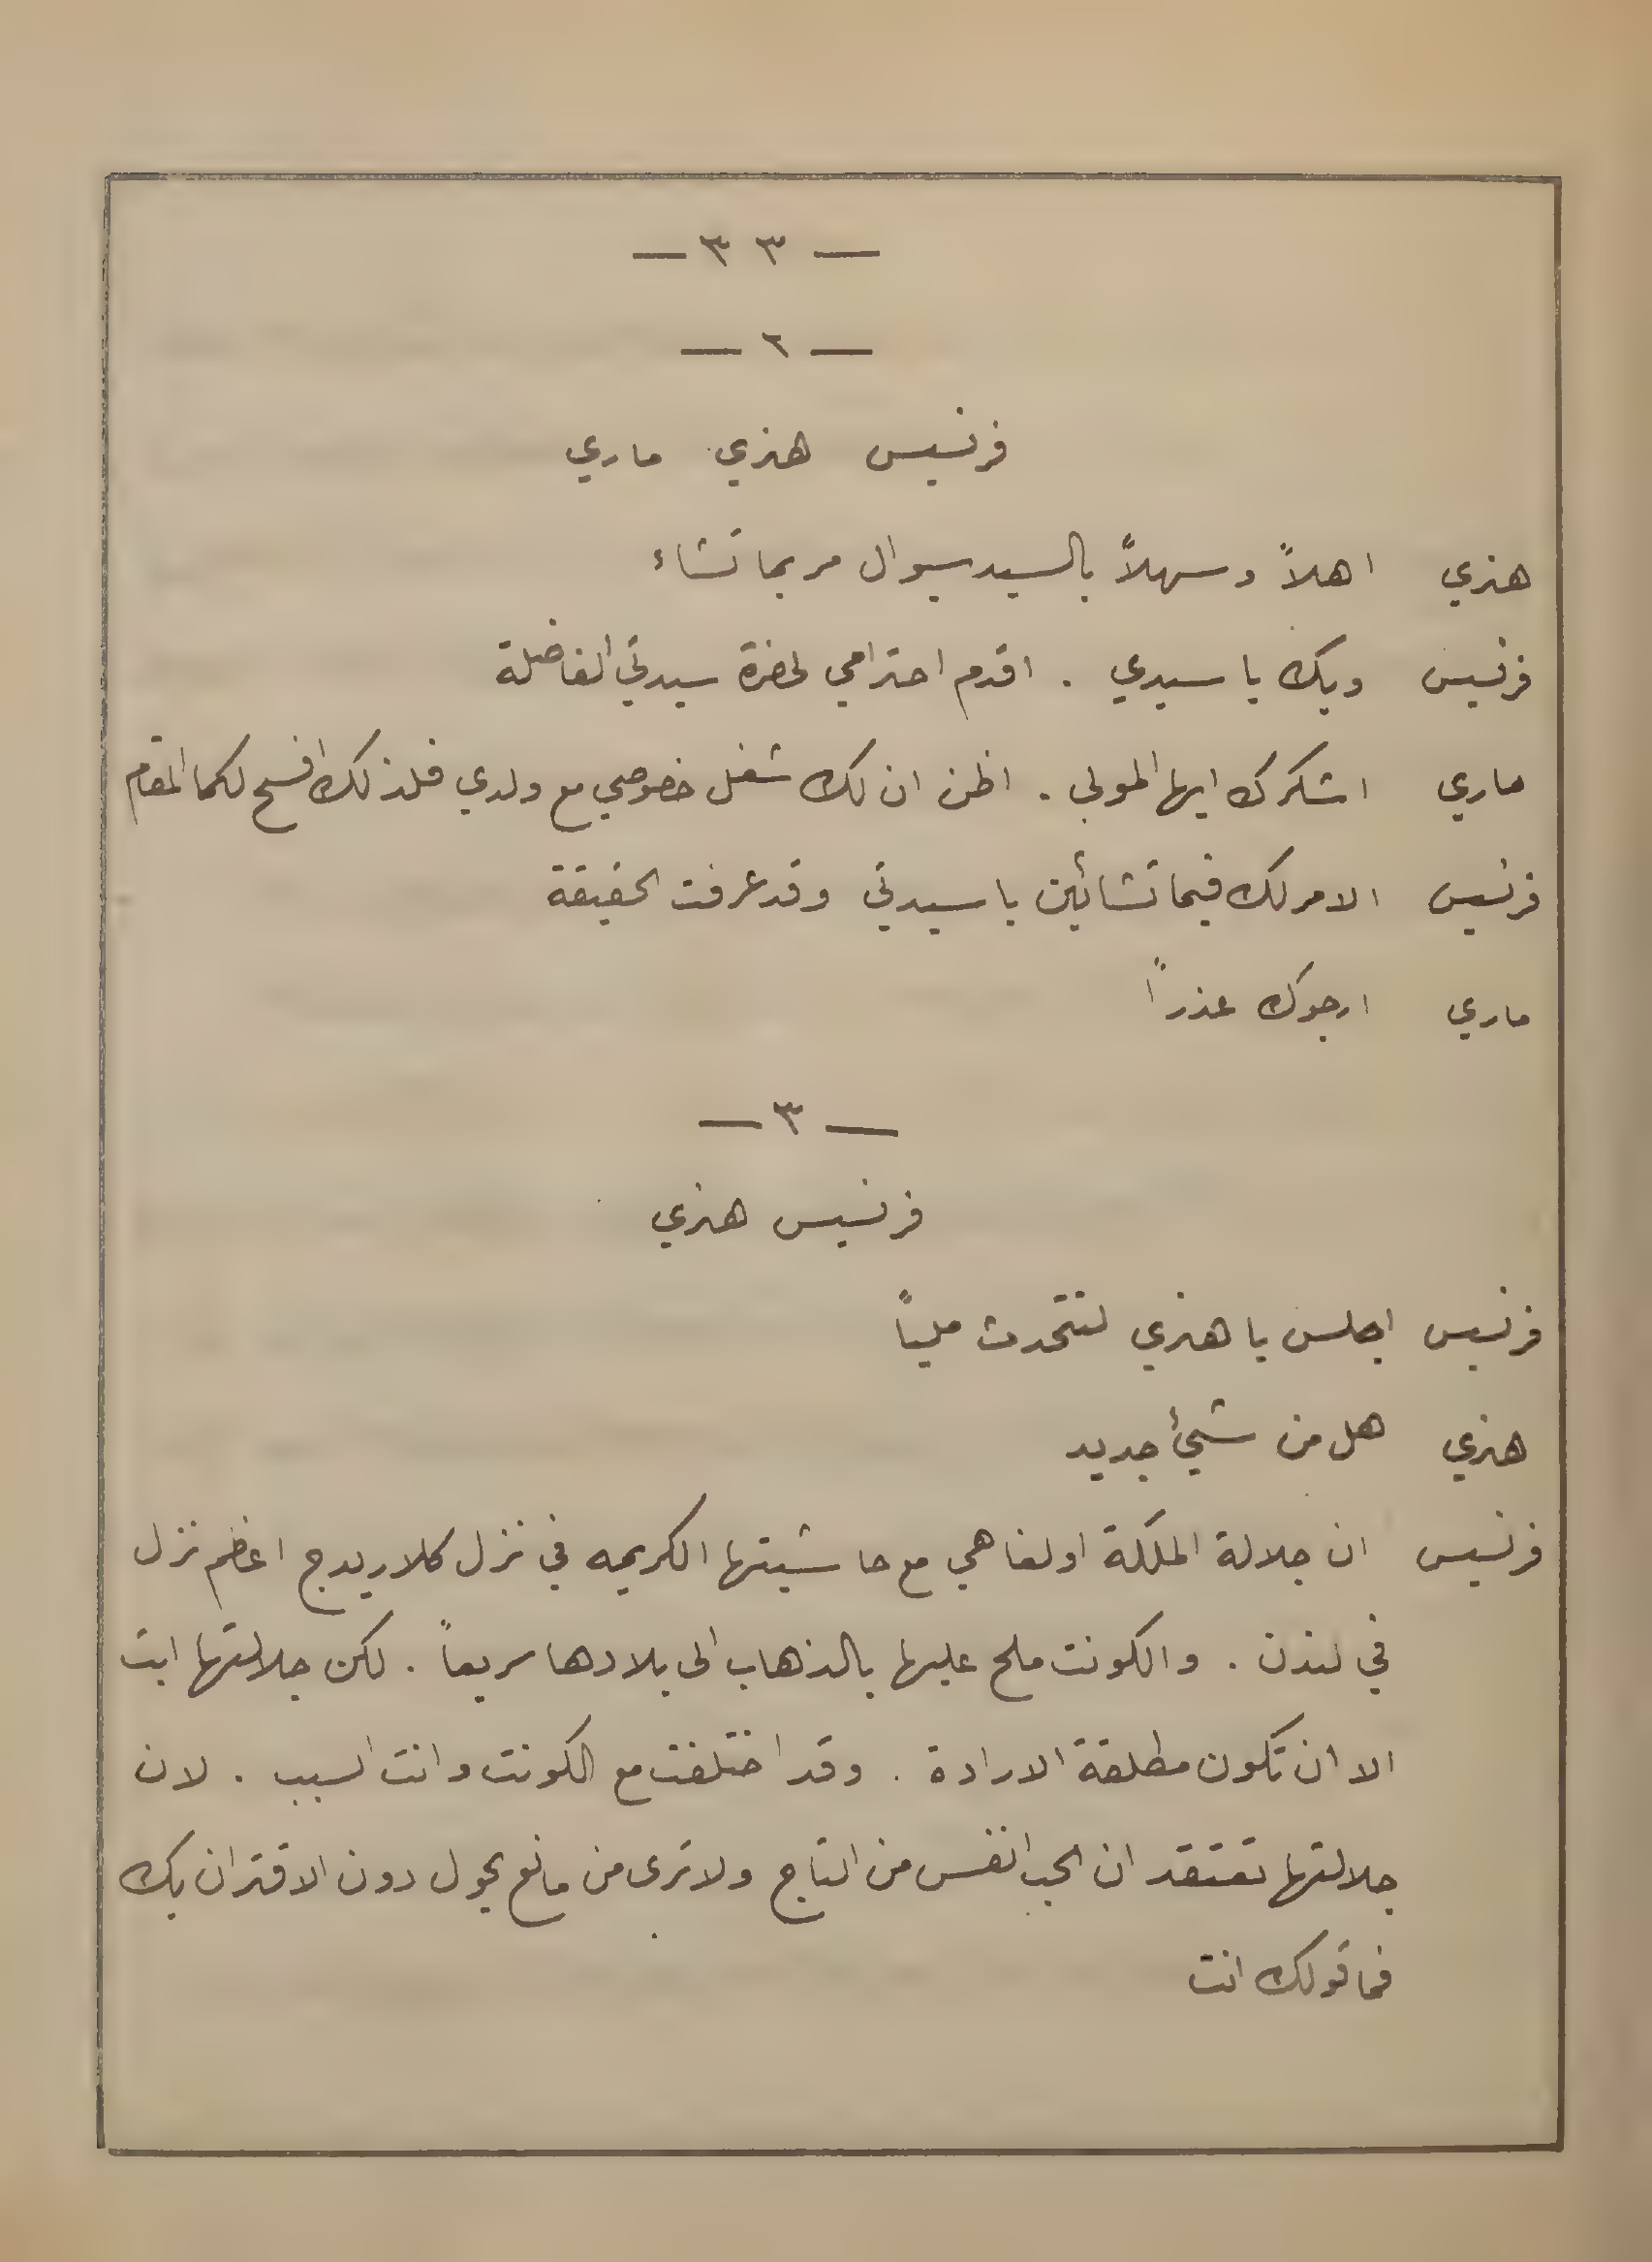 — ٣٣ —
— ٢ —
فرنسيس هنري ماري
هنري اهلاً وسهلاً بالسيد سيوال مر بما تشاء
فرنسيس وبك يا سيدي . اقدم احترامي لحضرة سيدتي الفاضلة
ماري اشكرك ايها المولى . اظن ان لك شغل خصوصي مع ولدي فلذلك افسح لكما المقام
فرنسيس الامر لك فيما تشائين يا سيدتي وقد عرفت الحقيقة
ماري ارجوك عذراً
— ٣ —
فرنسيس هنري
فرنسيس اجلس يا هنري لنتحدث ملياً
هنري هل من شيئ جديد
فرنسيس ان جلالة الملكة اولغا هي مع حاشيتها الكريمه في نزل كلاريدج اعظم نزل
في لندن . والكونت ملح عليها بالذهاب الى بلادها سريعاً . لكن جلالتها ابت
الا ان تكون مطلقة الارادة . وقد اختلفت مع الكونت وانت السبب . لان
جلالتها تعتقد ان الحب انفس من التاج ولا ترى من مانع يحول دون الاقتران بك
فما قولك انت